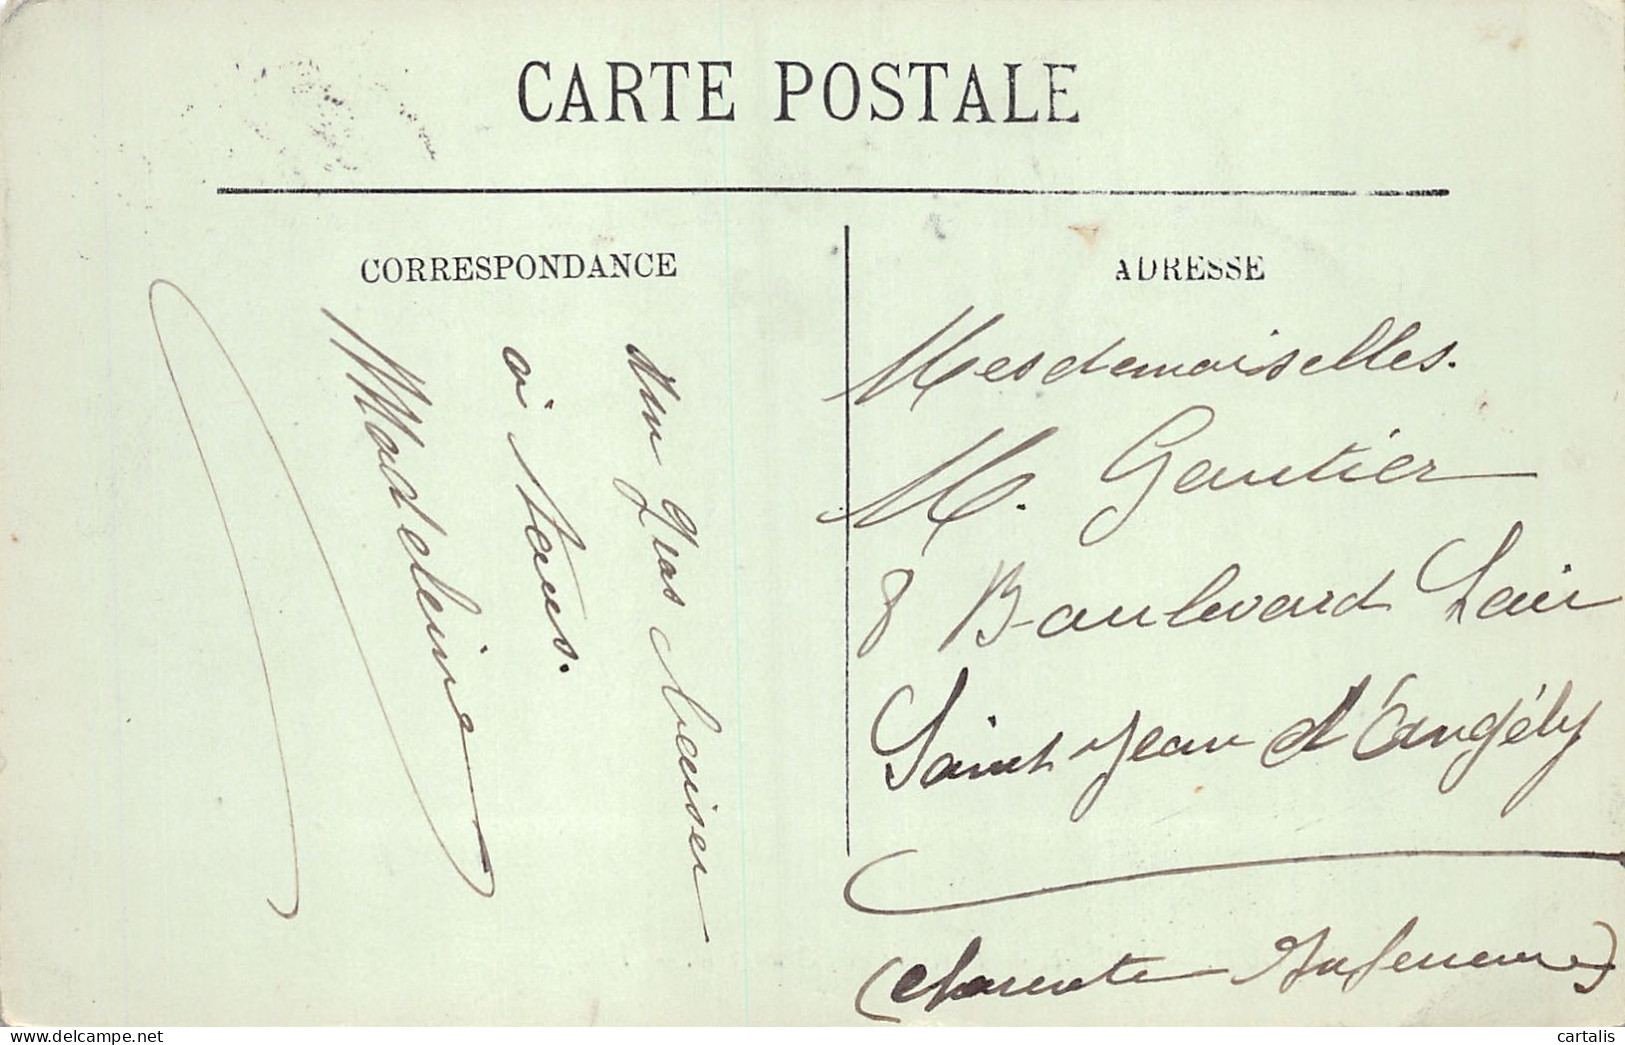 CARTE POSTALE
CORRESPONDANCE
Un gros baiser
à tous.
Madeleine
ADRESSE
Mesdemoiselles.
M. Gautier
8 Boulevard Lair
Saint Jean d'Angély
(Charente Inférieure)
cartalis